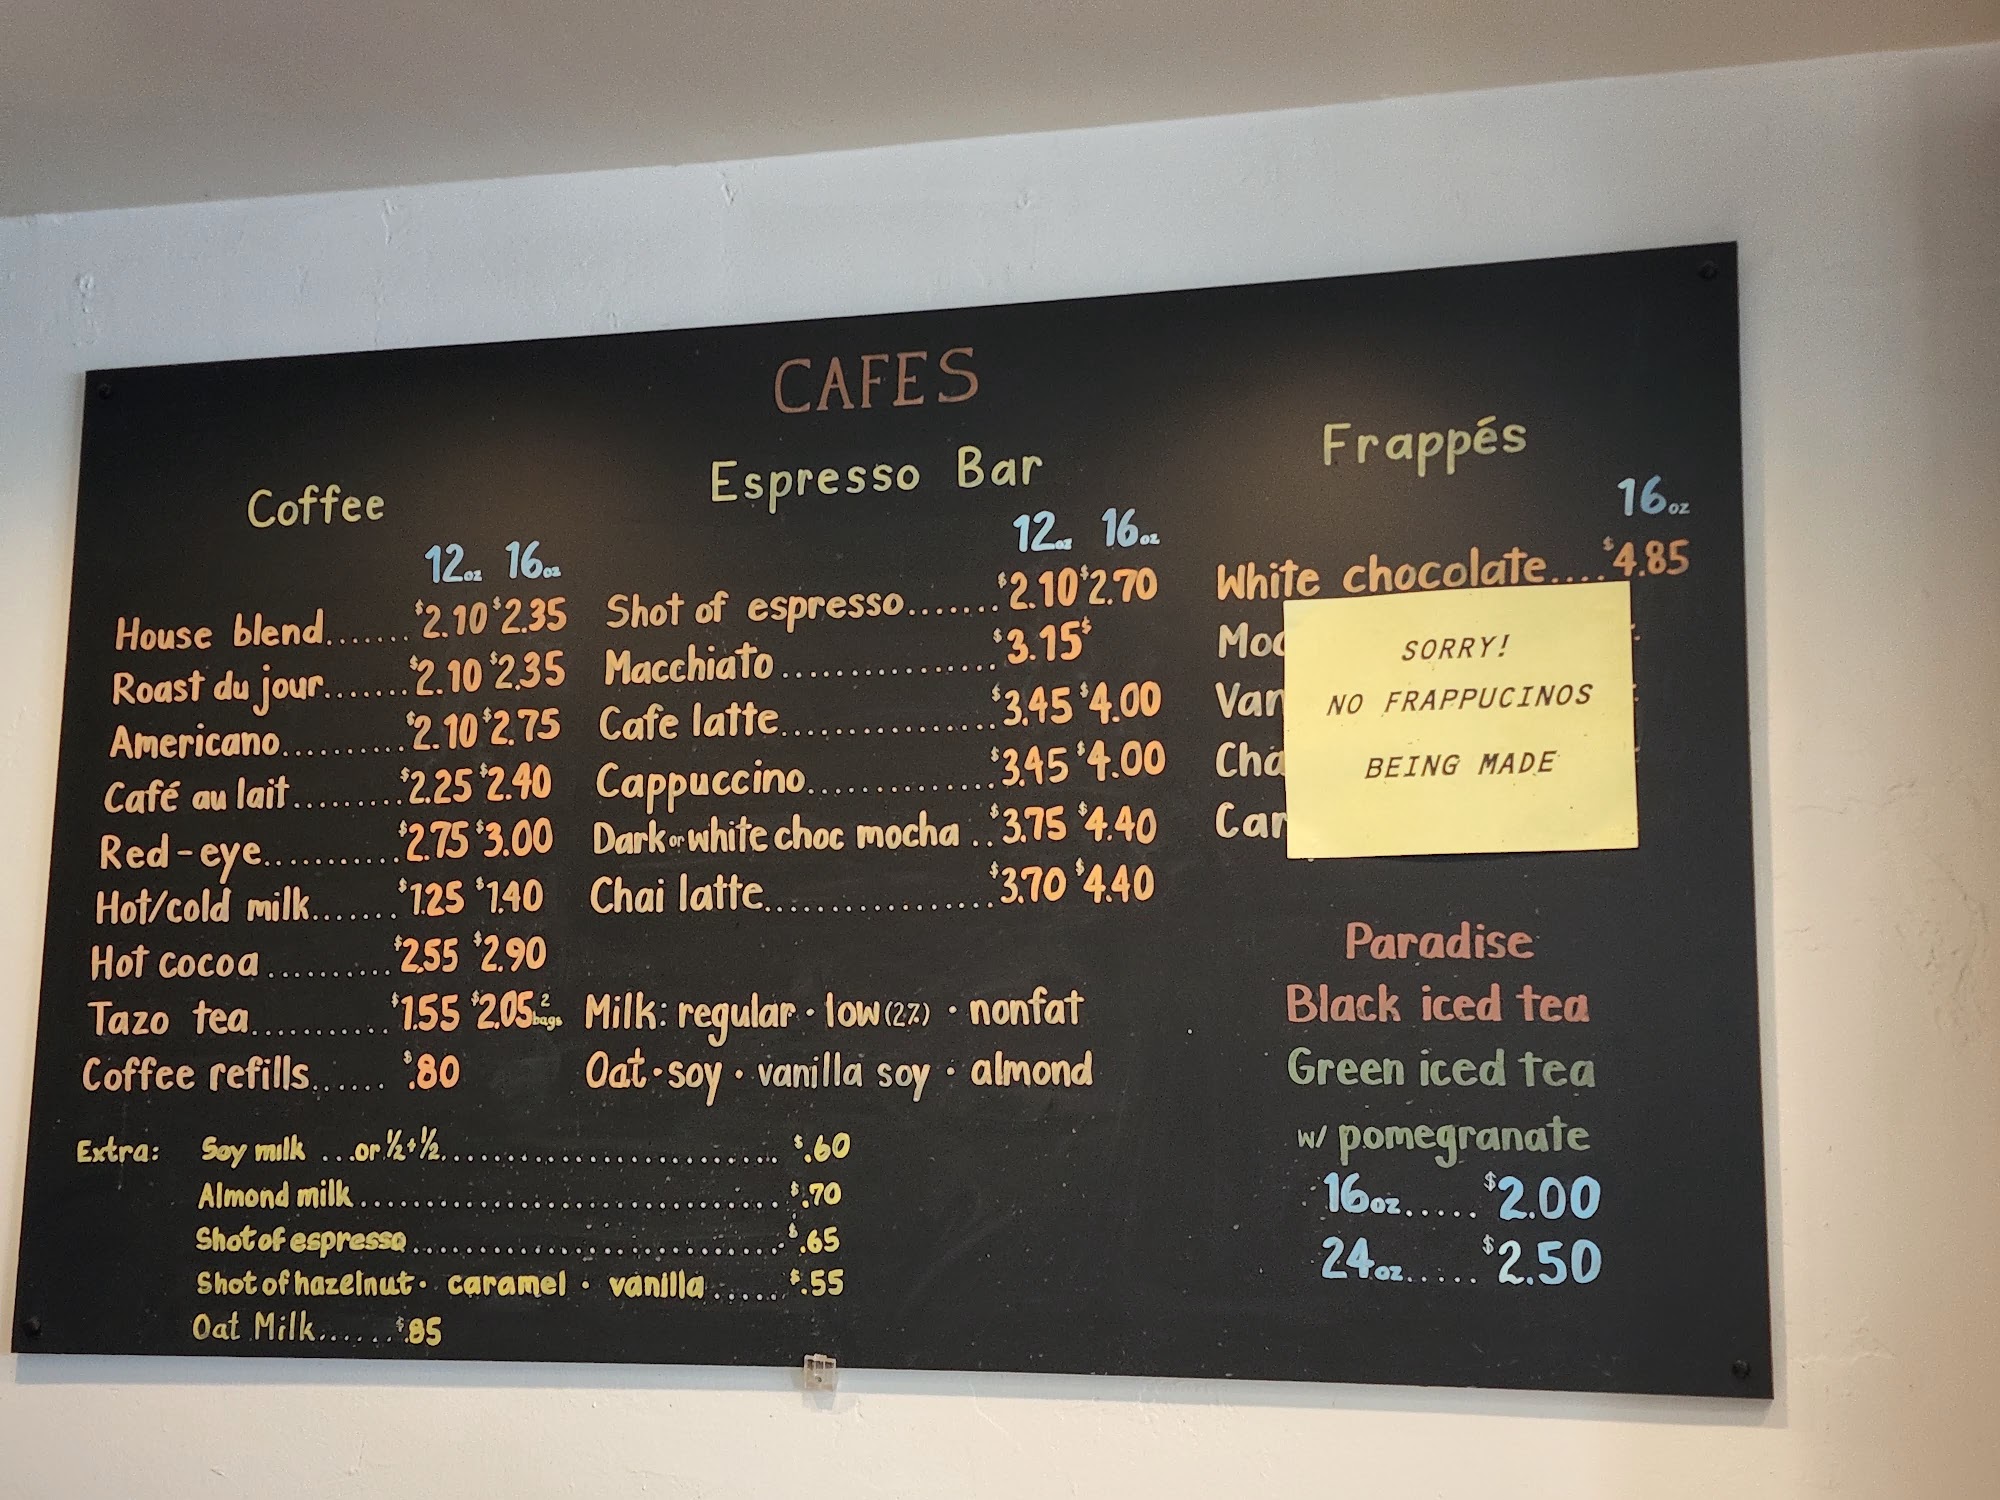 CAFES
Coffee
12oz 16oz
House blend....... $2.10 $2.35
Roast du jour....... $2.10 $2.35
Americano.......... $2.10 $2.75
Café au lait......... $2.25 $2.40
Red-eye........... $2.75 $3.00
Hot/cold milk....... $1.25 $1.40
Hot cocoa.......... $2.55 $2.90
Tazo tea........... $1.55 $2.05 2 bags
Coffee refills...... $.80
Espresso Bar
12oz 16oz
Shot of espresso....... $2.10 $2.70
Macchiato................ $3.15 $
Cafe latte................ $3.45 $4.00
Cappuccino.............. $3.45 $4.00
Dark or white choc mocha .. $3.75 $4.40
Chai latte................. $3.70 $4.40
Milk: regular · low (2%) · nonfat
Oat · soy · vanilla soy · almond
Extra: Soy milk ...or ½+½............................ $.60
Almond milk................................... $.70
Shot of espresso.............................. $.65
Shot of hazelnut · caramel · vanilla...... $.55
Oat Milk...... $.85
Frappés
16oz
White chocolate.... $4.85
SORRY!
NO FRAPPUCINOS
BEING MADE
Paradise
Black iced tea
Green iced tea
w/ pomegranate
16oz..... $2.00
24oz..... $2.50